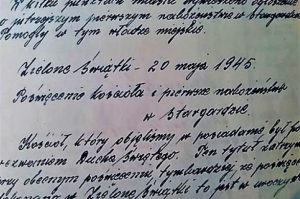 W kilku punktach miasta wywieszono ogłoszenie
o jutrzejszym pierwszym nabożeństwie w Stargardzie.
Pomogły w tym władze miejskie.
Zielone Świątki - 20 maja 1945.
Poświęcenie kościoła i pierwsze nabożeństwo
w Stargardzie.
Kościół, który objęliśmy w posiadanie był pod
wezwaniem Ducha Świętego. Ten tytuł zatrzym
przy obecnym poświęceniu tymbardziej, że poświęc
w Zielone Świątki to jest w uroczys